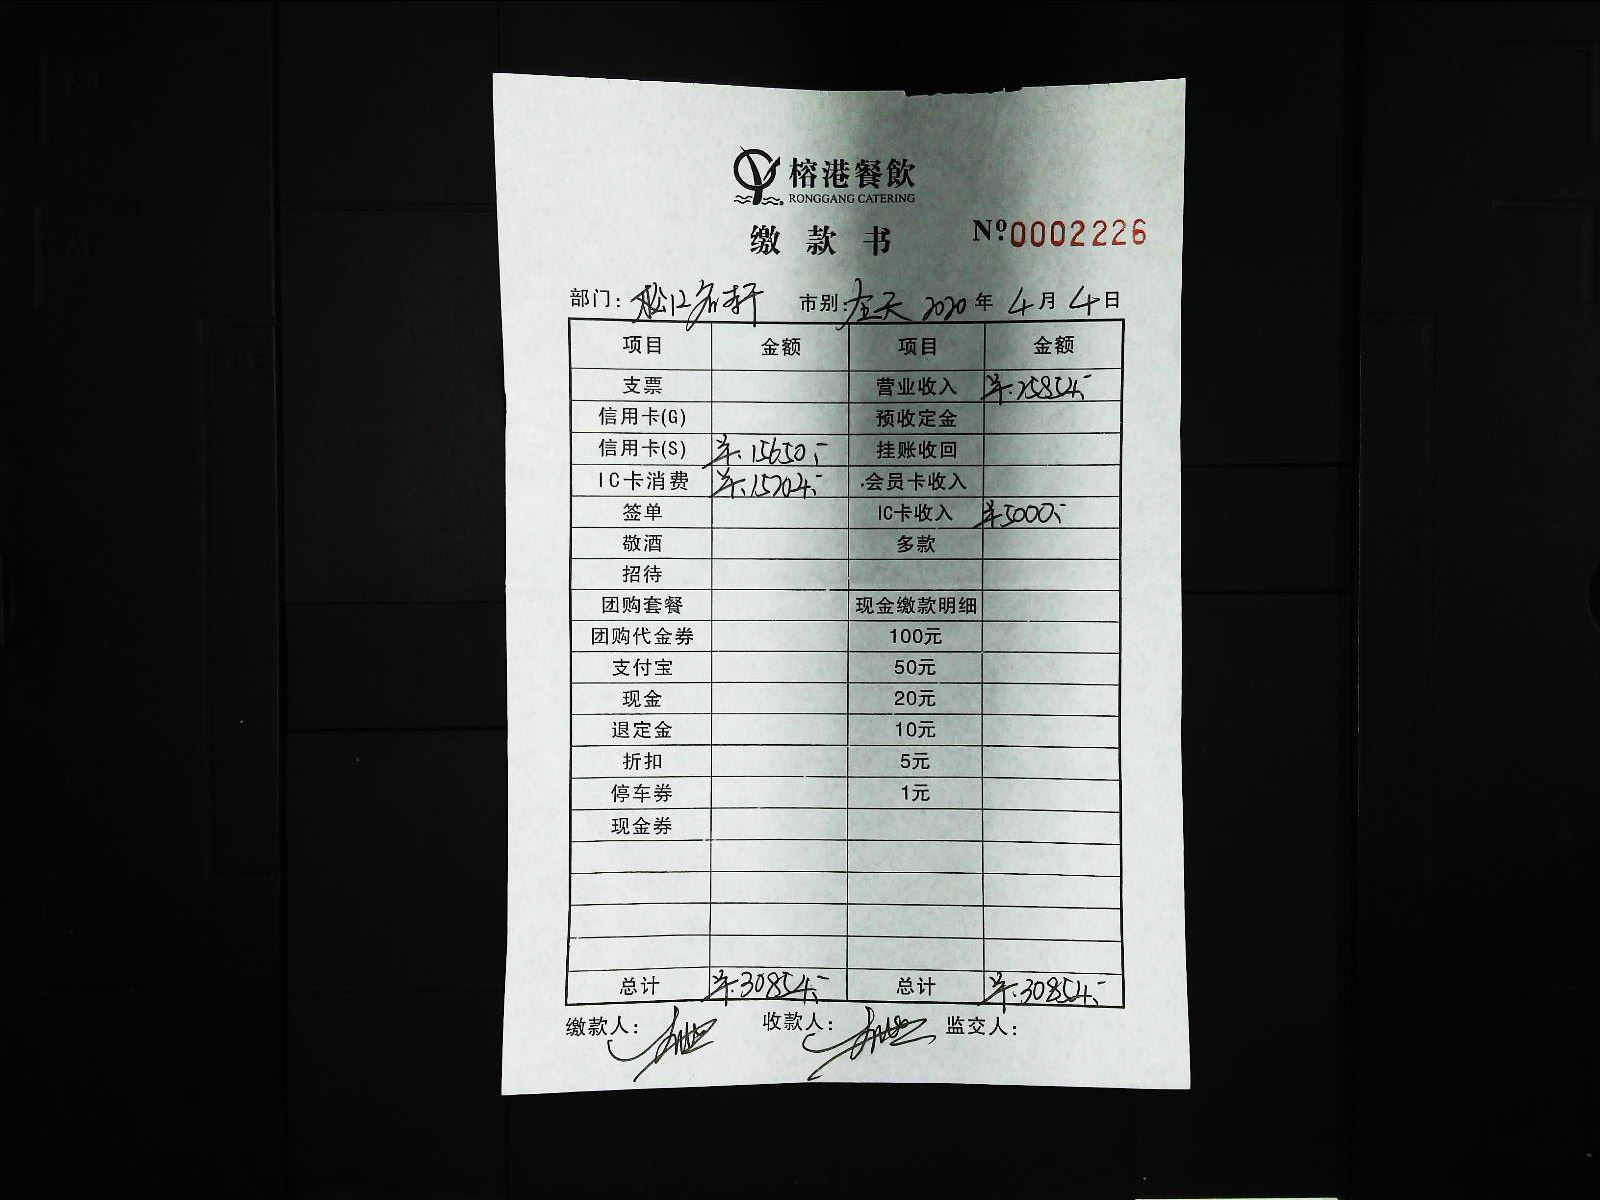 榕港餐飲
RONGGANG CATERING
缴款书 Nº0002226
部门：松江名轩 市别：全天 2020年4月4日
项目 金额 项目 金额
支票 营业收入 ¥.25854.-
信用卡(G) 预收定金
信用卡(S) ¥.15650.- 挂账收回
IC卡消费 ¥.15204.- 会员卡收入
签单 IC卡收入 ¥5000.-
敬酒 多款
招待
团购套餐 现金缴款明细
团购代金券 100元
支付宝 50元
现金 20元
退定金 10元
折扣 5元
停车券 1元
现金券
总计 ¥.30854.- 总计 ¥.30854.-
缴款人： 收款人： 监交人：